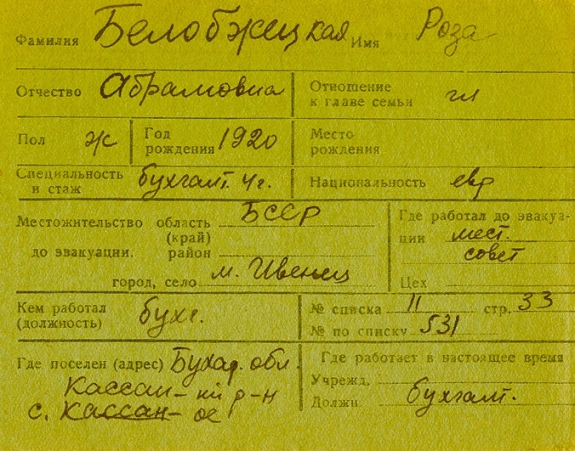 Фамилия Белобжецкая Имя Роза
Отчество Абрамовна
Отношение
к главе семьи гл
Пол ж
Год
рождения 1920
Место
рождения
Специальность
и стаж бухгалт. 4 г.
Национальность евр
Местожительство область БССР
(край)
до эвакуации. район
город, село м. Ивенец
Где работал до эвакуа-
ции мест.
совет
Цех
Кем работал
(должность) бухг.
№ списка 11 стр. 33
№ по списку 531
Где поселен (адрес) Бухар. обл.
Кассан-ий р-н
с. Кассан-ое
Где работает в настоящее время
Учрежд.
Должн. бухгалт.